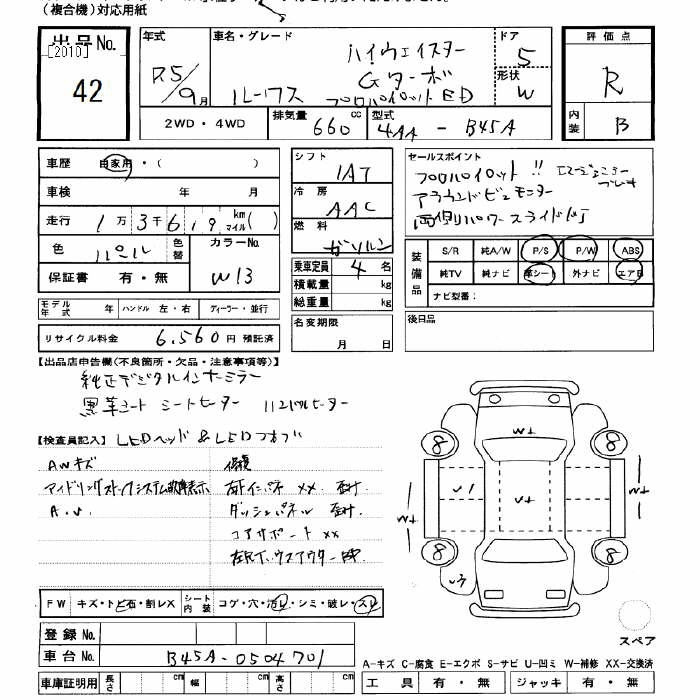 (複合機)対応用紙
出品No.
[2010]
42
年式
R5/9月
車名・グレード
ハイウェイスター
Gターボ
ルークス
プロパイロットED
ドア
5
形状
W
評価点
R
内装
B
2WD・4WD
排気量
660
cc
型式
4AA - B45A
車歴
自家用・( )
車検
年 月
走行
1万3千619km マイル( )
色
パール
色替
カラーNo.
W13
保証書
有・無
モデル年式
年
ハンドル 左・右
ディーラー・並行
リサイクル料金
6,560円 預託済
シフト
IAT
冷房
AAC
燃料
ガソリン
乗車定員
4名
積載量
kg
総重量
kg
名変期限
月 日
セールスポイント
プロパイロット!! エマージェンシーブレーキ
アラウンドビューモニター
両側パワースライドドア
装備品
S/R
純A/W
P/S
P/W
ABS
純TV
純ナビ
革シート
外ナビ
エアB
ナビ型番:
後日品
【出品店申告欄(不良箇所・欠品・注意事項等)】
純正デジタルインナーミラー
黒革シート シートヒーター ハンドルヒーター
【検査員記入】
LEDヘッド & LEDフォグ
AWキズ
アイドリングストップシステム故障表示
A.U.
修復
ダッシュパネル
コアサポート XX
8
8
8
8
W+
W+
W+
W+
U1
U3
スペア
FW
キズ・トビ石・割レX
シート内装
コゲ・穴・汚レ・シミ・破レ・スレ
登録No.
車台No.
B45A-0504701
車庫証明用
長さ
cm
幅
cm
高さ
cm
A-キズ C-腐食 E-エクボ S-サビ U-凹ミ W-補修 XX-交換済
工具
有・無
ジャッキ
有・無